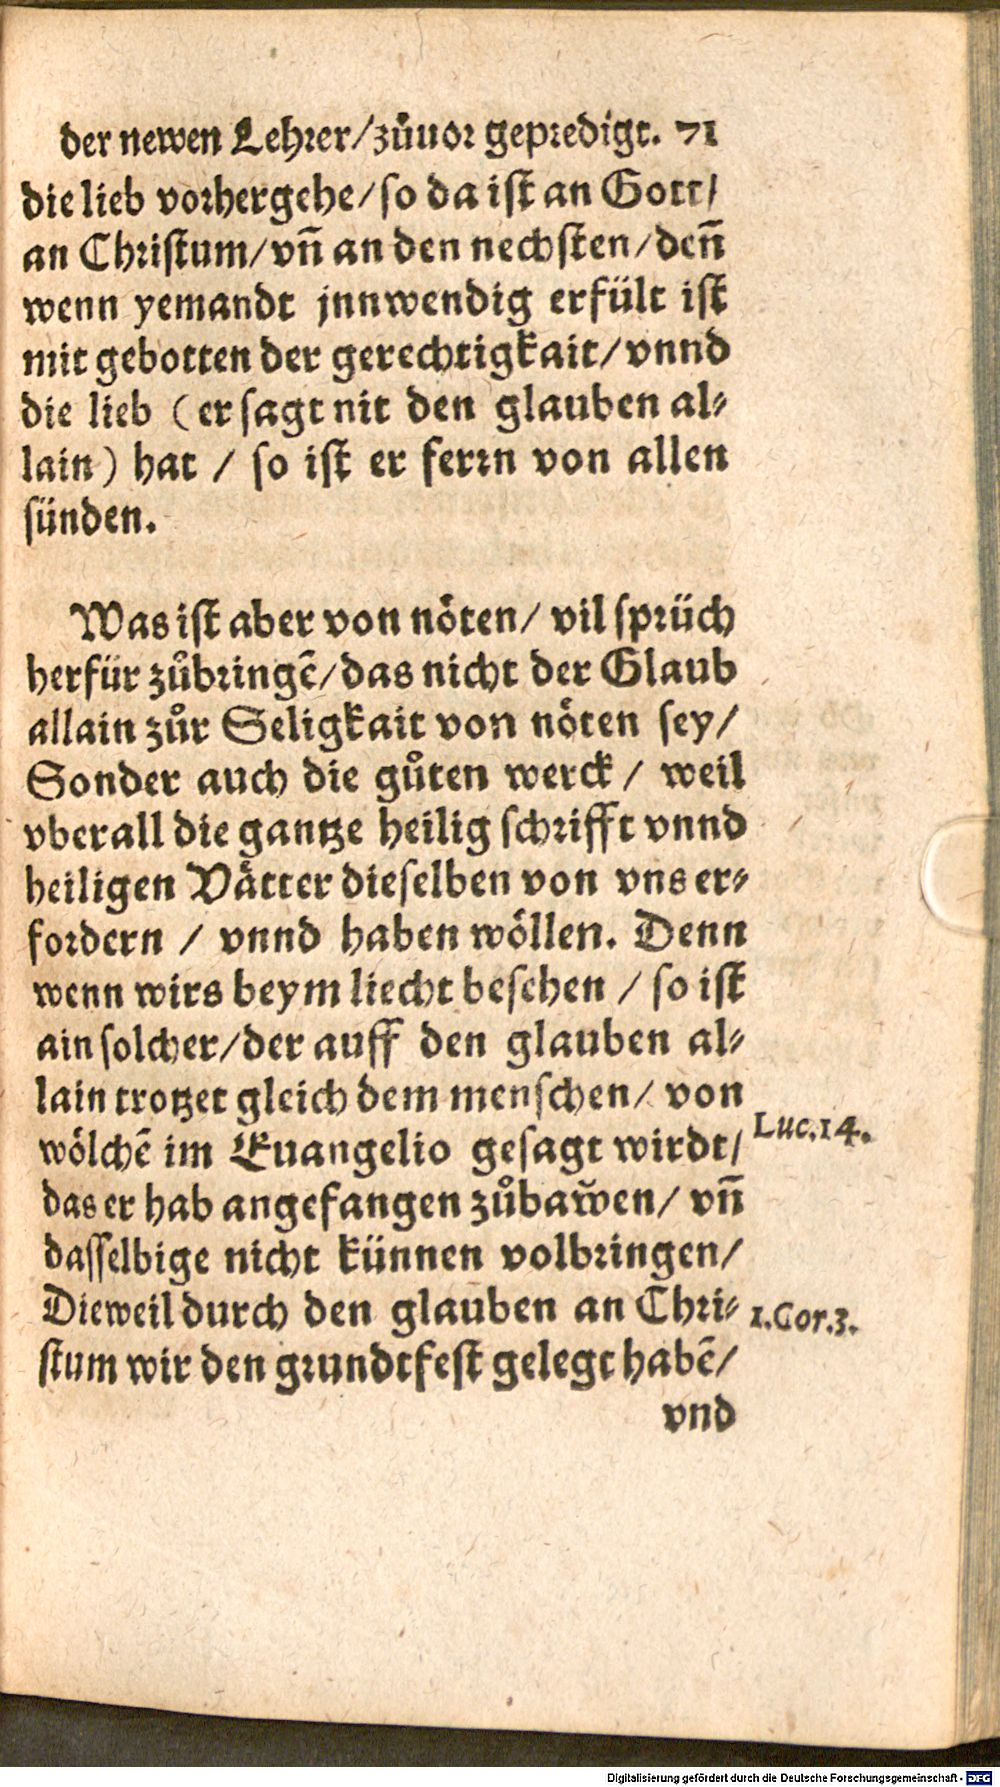 der newen Lehrer/zůuor gepredigt. 71
die lieb vorhergehe/so da ist an Gott/
an Christum/vñ an den nechsten/deñ
wenn yemandt jnnwendig erfült ist
mit gebotten der gerechtigkait/vnnd
die lieb (er sagt nit den glauben al⸗
lain) hat / so ist er ferrn von allen
sünden.
Was ist aber von nöten/ vil sprüch
herfür zůbringẽ/das nicht der Glaub
allain zůr Seligkait von nöten sey/
Sonder auch die gůten werck / weil
vberall die gantze heilig schrifft vnnd
heiligen Vätter dieselben von vns er⸗
fordern / vnnd haben wöllen. Denn
wenn wirs beym liecht besehen / so ist
ain solcher/der auff den glauben al⸗
lain trotzet gleich dem menschen/ von
wölchẽ im Euangelio gesagt wirdt/
Luc.14.
das er hab angefangen zůbaw̃en/ vñ
dasselbige nicht künnen volbringen/
Dieweil durch den glauben an Chri⸗
1.Cor.3.
stum wir den grundtfest gelegt habẽ/
vnd
Digitalisierung gefördert durch die Deutsche Forschungsgemeinschaft - DFG